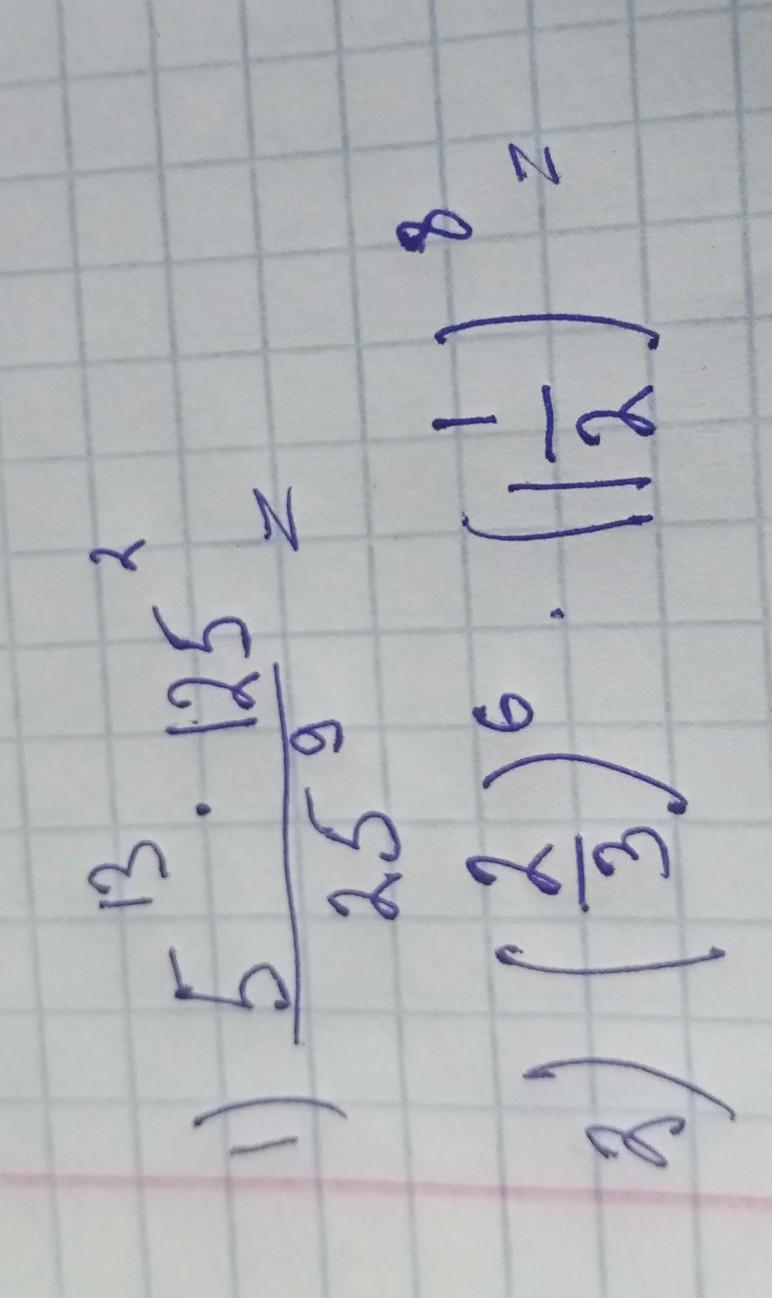 1) 5^13 · 125^2 / 25^9 =
2) (2/3)^6 · (1 1/2)^8 =